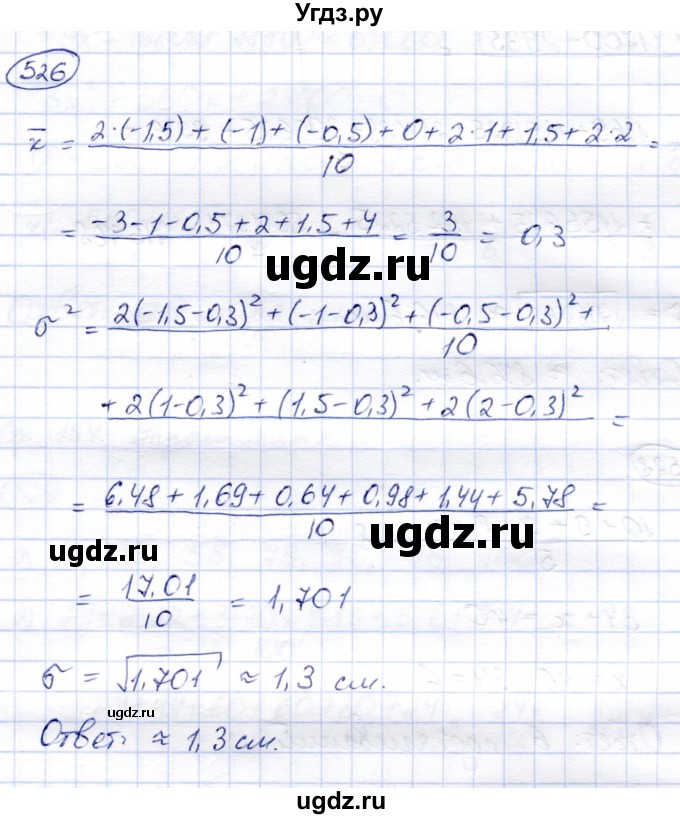 Угдз.ру
526
x̄ = (2·(-1,5) + (-1) + (-0,5) + 0 + 2·1 + 1,5 + 2·2)/10 =
= (-3-1-0,5+2+1,5+4)/10 = 3/10 = 0,3
ugdz.ru
σ² = (2(-1,5-0,3)² + (-1-0,3)² + (-0,5-0,3)² +)/10
+ 2(1-0,3)² + (1,5-0,3)² + 2(2-0,3)² =
= (6,48 + 1,69 + 0,64 + 0,98 + 1,44 + 5,78)/10 =
ugdz.ru
ugdz.ru
= 17,01/10 = 1,701
σ = √1,701 ≈ 1,3 см.
ugdz.ru
Ответ: ≈ 1,3 см.
ugdz.ru